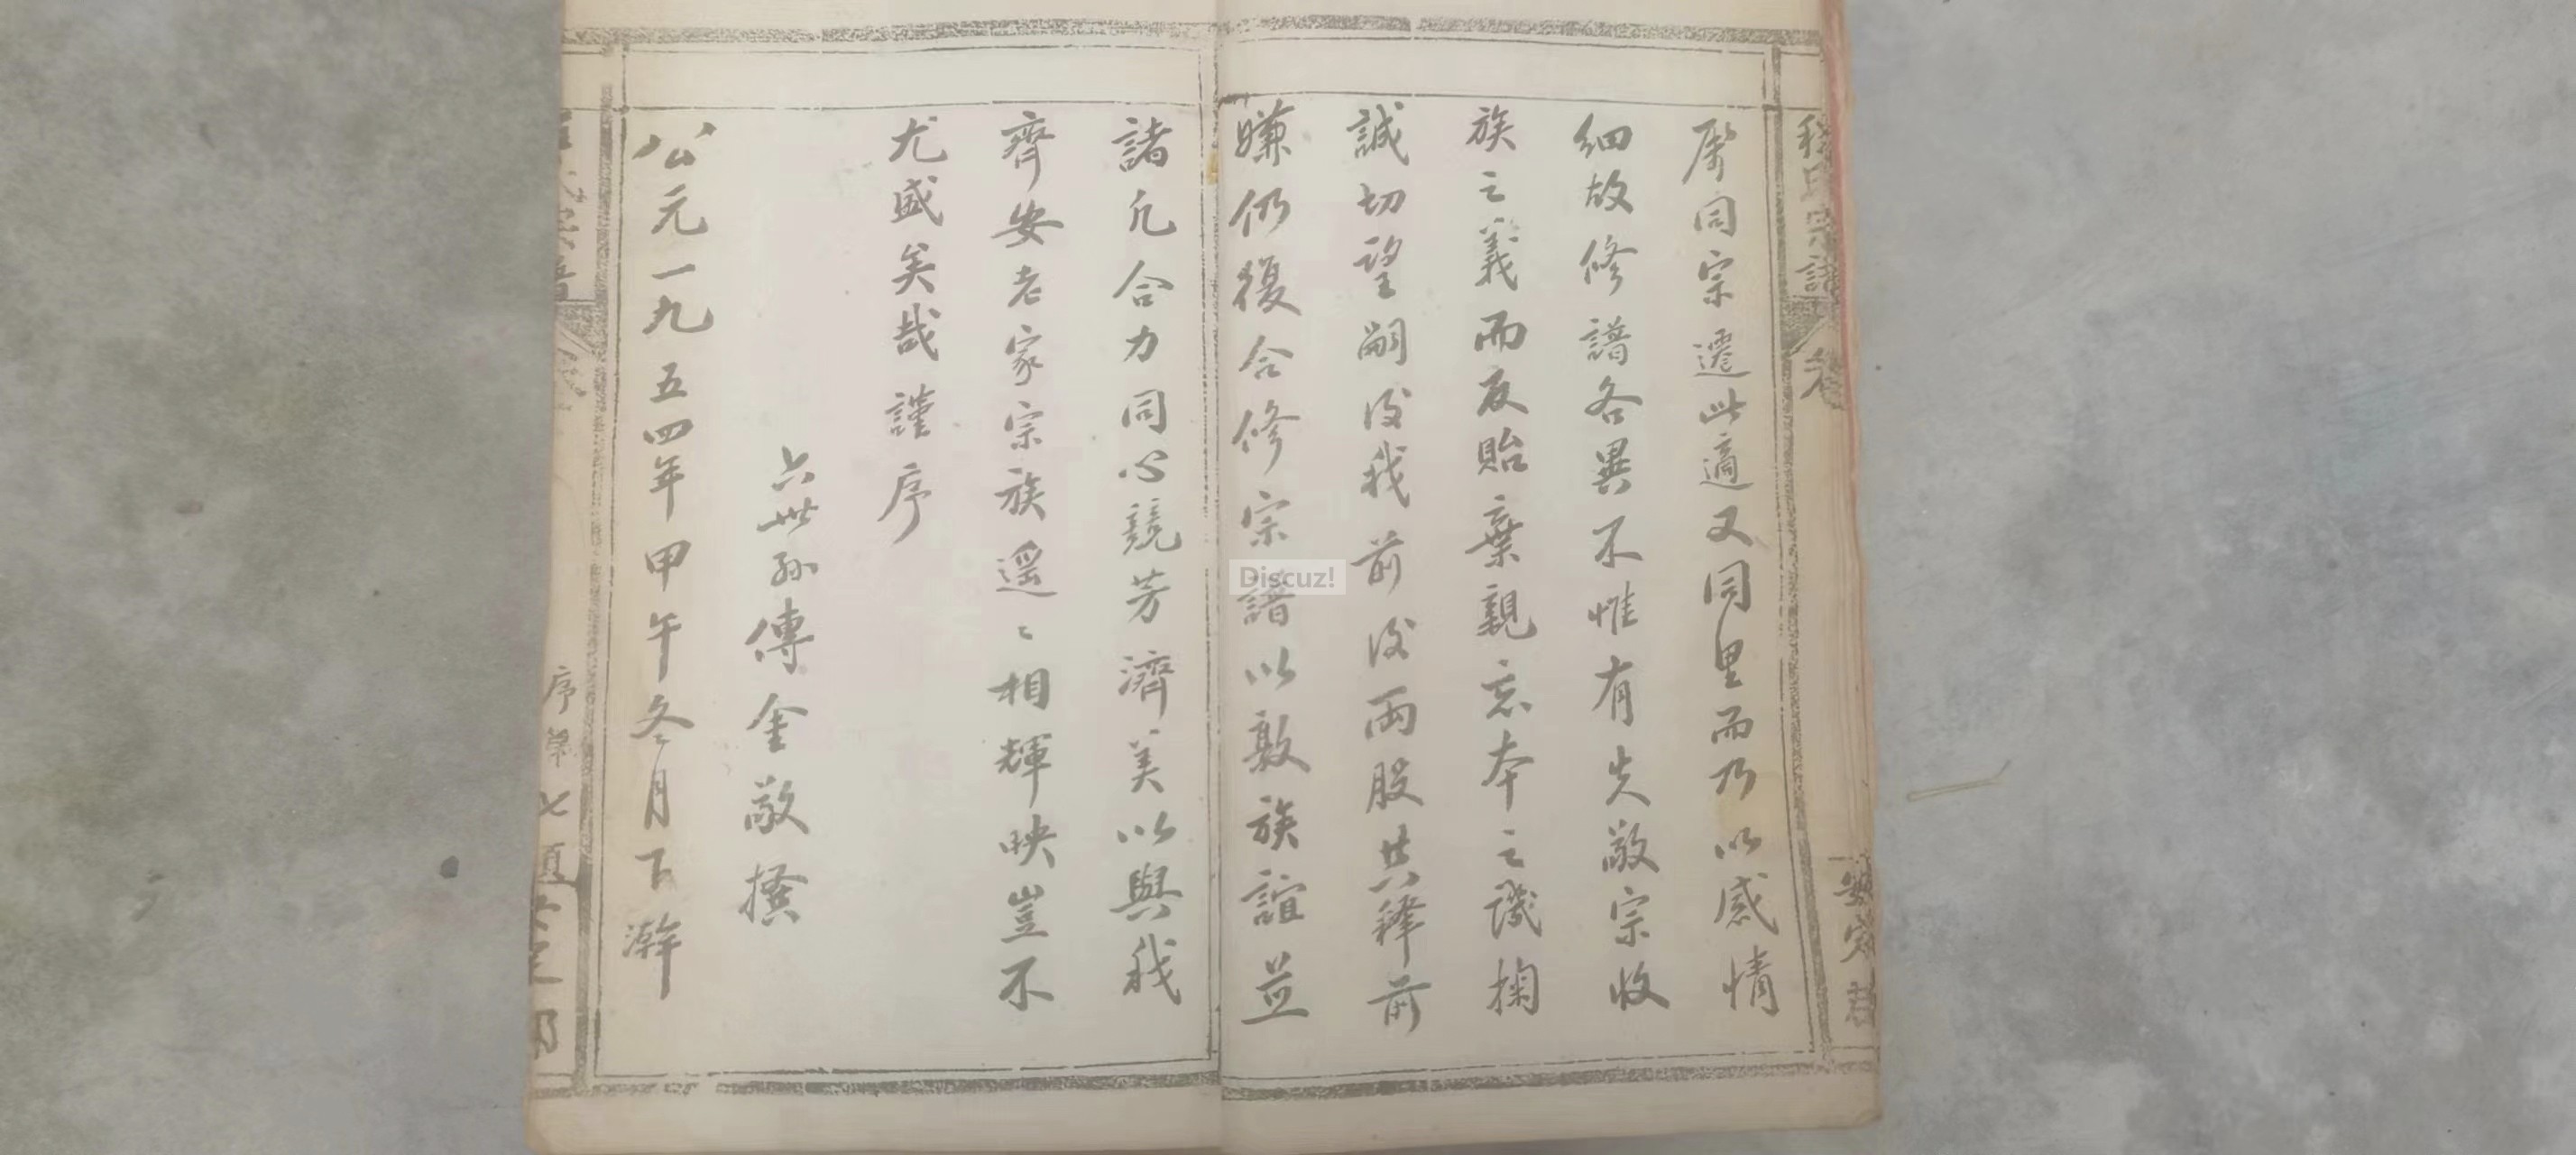 屬同宗遷此適又同里而乃以感情
細故修譜各異不惟有失敬宗收
族之義而反貽棄親忘本之譏掬
誠切望嗣后我前后两股共釋前
嫌仍復合修宗譜以敦族誼並
諸凡合力同心競芳濟美以與我
齊安老家宗族遥〻相輝映豈不
尤盛矣哉謹序
六世孙傳金敬撰
公元一九五四年甲午冬月下澣
序第七頁
Discuz!